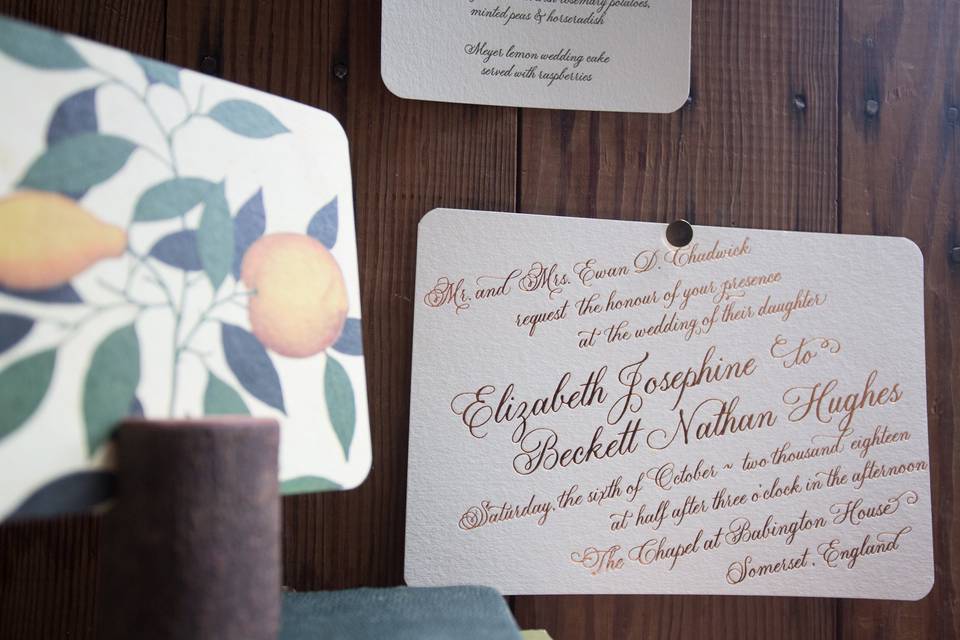 rosemary potatoes,
minted peas & horseradish
Meyer lemon wedding cake
served with raspberries
Mr. and Mrs. Ewan D. Chadwick
request the honour of your presence
at the wedding of their daughter
Elizabeth Josephine to
Beckett Nathan Hughes
Saturday, the sixth of October ~ two thousand eighteen
at half after three o'clock in the afternoon
The Chapel at Babington House
Somerset, England